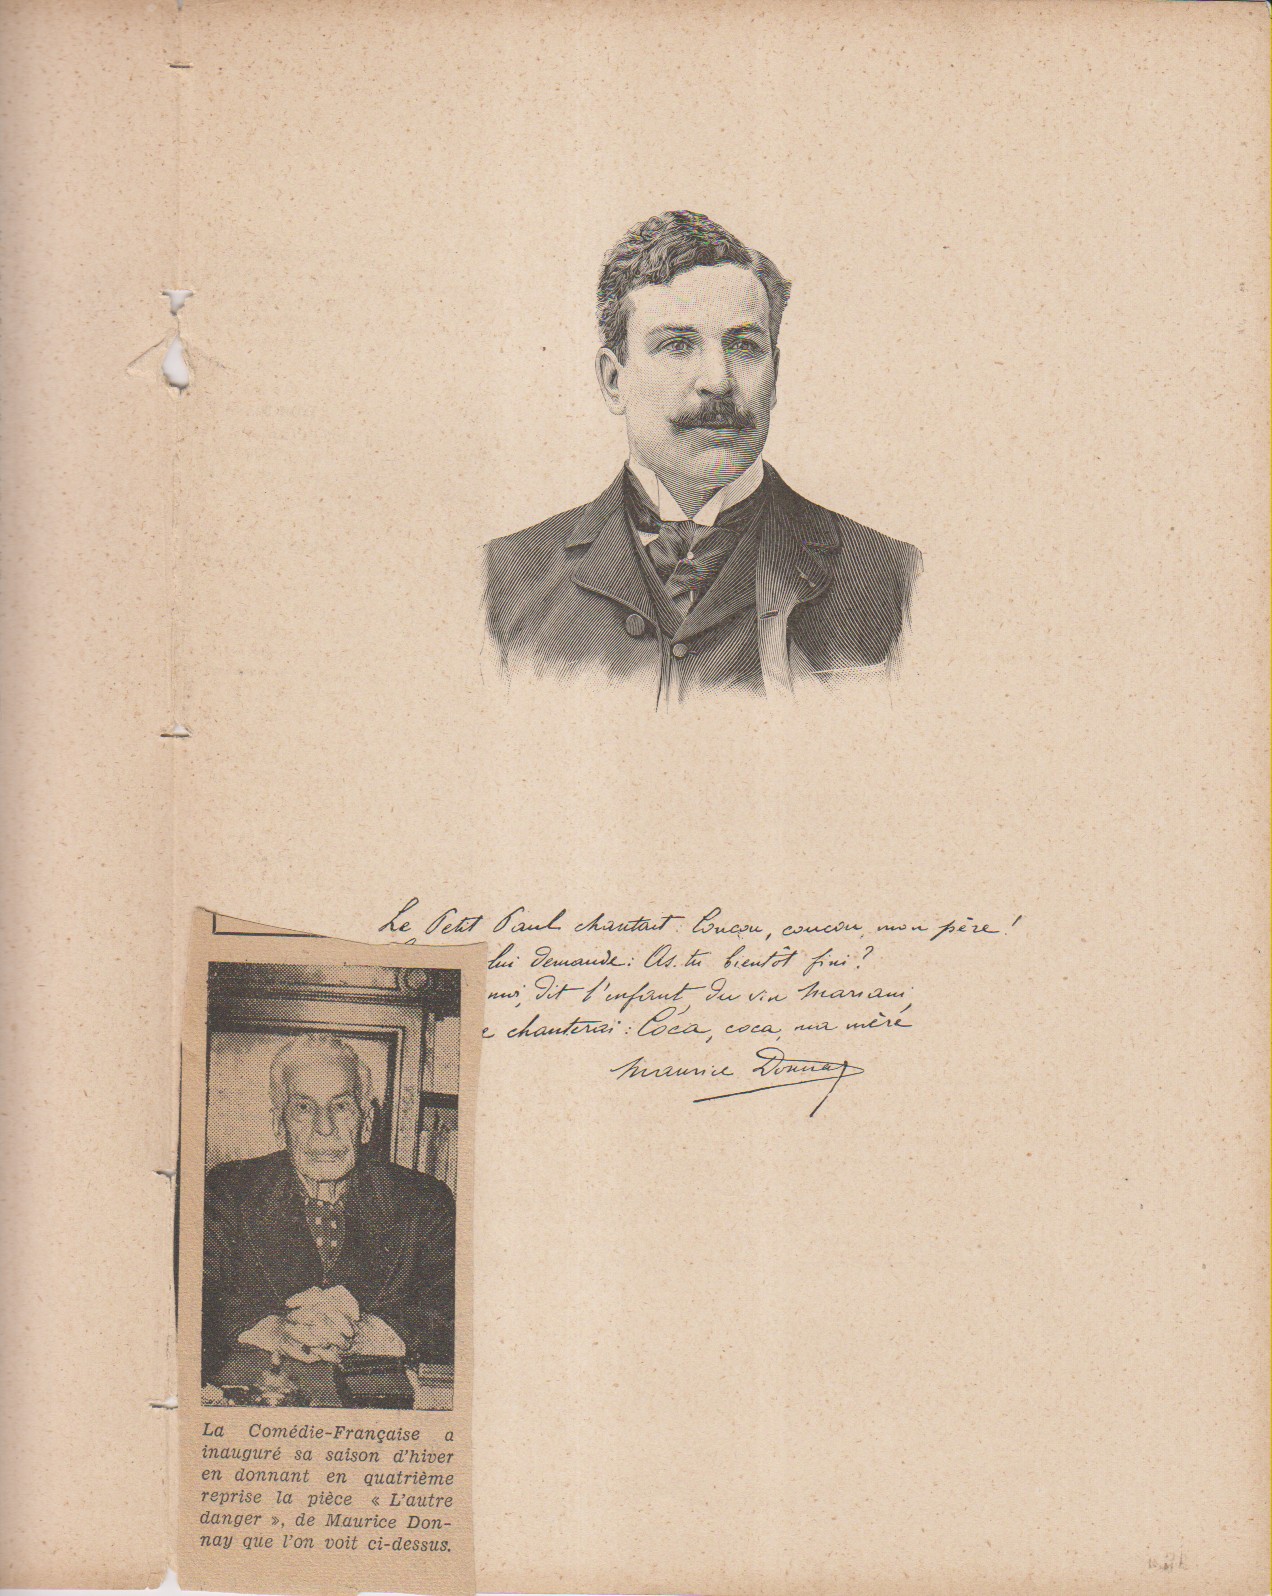 Le Petit Paul chantant : Coucou, coucou, mon père !
lui demande : As-tu bientôt fini ?
moi, dit l'enfant, du vin Mariani,
e chanterai : Coca, coca, ma mère
Maurice Donnay
La Comédie-Française a
inauguré sa saison d'hiver
en donnant en quatrième
reprise la pièce « L'autre
danger », de Maurice Don-
nay que l'on voit ci-dessus.